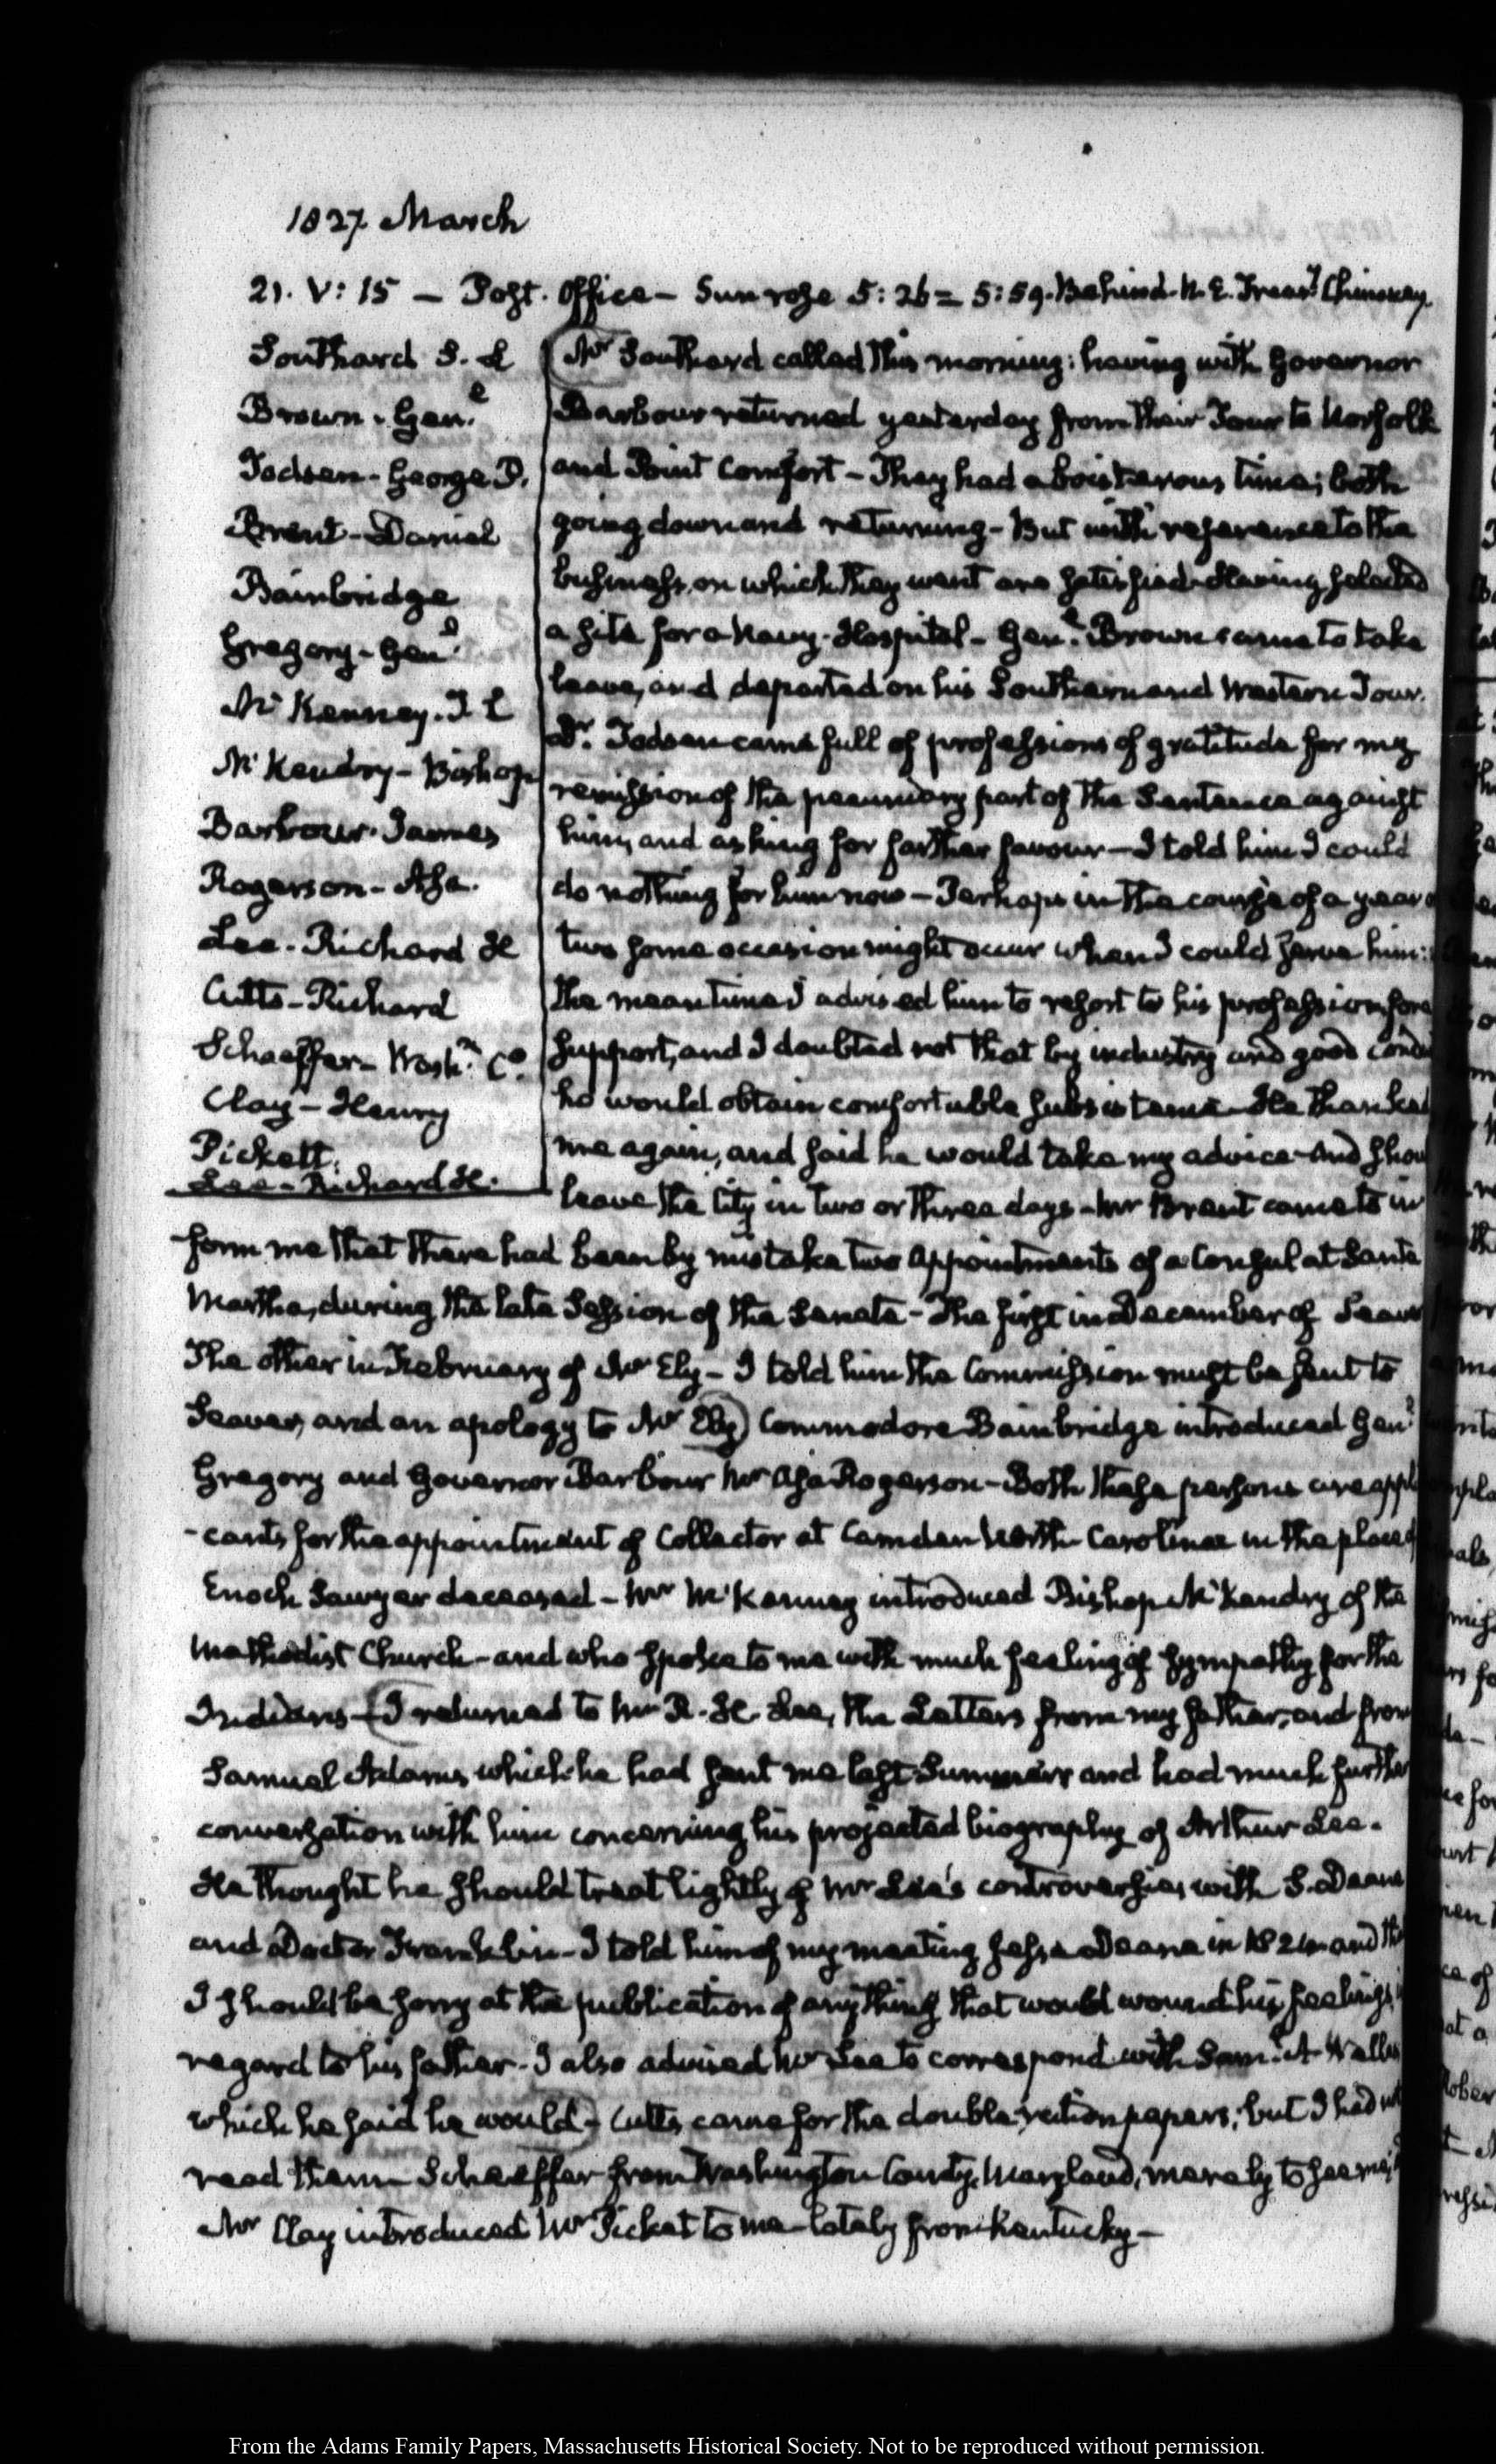 1827. March
21. V: 15 — Post. Office — Sun rose 5: 26 = 5: 59. Behind. N. E. Treasy. Chimney.
Southard S. L
Brown. Genl.
Todsen - George P.
Brent - Daniel
Bainbridge
Gregory - Genl.
McKenney. T. L
McKendry - Bishop
Barbour. James
Rogerson - Asa.
Lee. Richard H
Cutts - Richard
Schaeffer - Washn. Co.
Clay - Henry
Pickett.
Lee - Richard H.
Mr Southard called this morning: having with Governor
Barbour returned yesterday from their Tour to Norfolk
and Point Comfort - They had a boisterous time; both
going down and returning - But with reference to the
business, on which they went are satisfied. Having selected
a site for a Navy. Hospital - Genl. Brown came to take
leave, and departed on his Southern and Western Tour.
Dr. Todsen came full of professions of gratitude for my
remission of the pecuniary part of the Sentence against
him, and asking for farther favour — I told him I could
do nothing for him now — Perhaps in the course of a year or
two some occasion might occur when I could serve him:
the mean time I advised him to resort to his profession for a
support, and I doubted not that by industry and good cond
he would obtain comfortable subsistence - He thanked
me again, and said he would take my advice - And shou
leave the City in two or three days - Mr Brent came to in
form me that there had been by mistake two appointments of a Consul at Santa
Martha, during the late Session of the Senate - The first in December of Seaver
The other in February of Mr Ely - I told him the Commission must be sent to
Seaver, and an apology to Mr Ely) Commodore Bainbridge introduced Genl.
Gregory and Governor Barbour Mr Asa Rogerson - Both these persons are appli
-cants for the appointment of Collector at Camden North-Carolina in the place of
Enoch Sawyer deceased - Mr McKenney introduced Bishop McKendry of the
Methodist Church - and who spoke to me with much feeling of sympathy for the
Indians - (I returned to Mr R. H. Lee, the Letters from my father, and from
Samuel Adams which he had sent me last Summer and had much further
conversation with him concerning his projected biography of Arthur Lee.
He thought he should treat lightly of Mr Lee's controversies with S. Deane
and Doctor Franklin - I told him of my meeting Jesse Deane in 1824 and tha
I should be sorry at the publication of any thing that would wound his feelings i
regard to his father. I also advised Mr Lee to correspond with Saml. A Wells
which he said he would) - Cutts came for the double ration papers, but I had not
read them - Schaeffer from Washington County, Maryland, merely to see me,
Mr Clay introduced Mr Picket to me - lately from Kentucky —
From the Adams Family Papers, Massachusetts Historical Society. Not to be reproduced without permission.